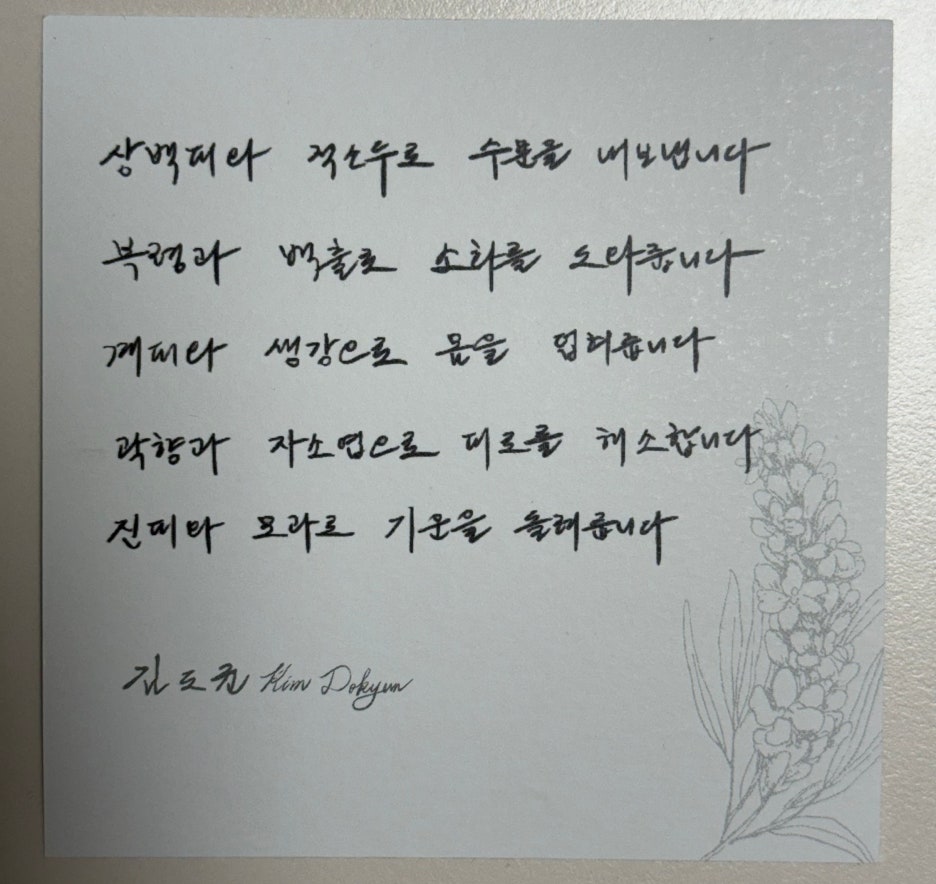 상백피와 적소두로 수분을 내보냅니다
복령과 백출로 소화를 도와줍니다
계피와 생강으로 몸을 덥혀줍니다
곽향과 자소엽으로 피로를 해소합니다
진피와 모과로 기운을 돌려줍니다
김도균 Kim Dokyun